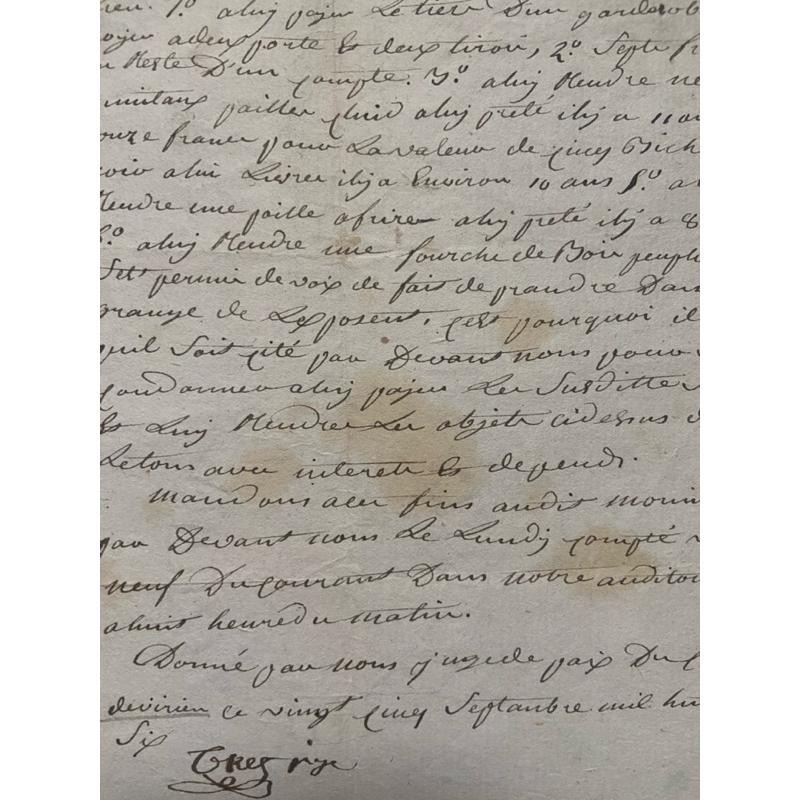 1.º a luy payer Le tier D'un garderob
noyer a deux porte Et deux tiroir, 2.º Sept fr
Reste D'un compte. 3.º a luy Rendre ne
pailler quil a luy preté il y a 11 an
onze franc pour La valeur de cinq Bich
a lui Livrer il y a Environ 10 ans 5.º a
Rendre une paille a luy preté il y a 8
6.º a luy Rendre une fourche de Bois peupl
S'est permis de voix de fait de prandre Dan
grange de Lexposent, cest pourquoi il
quil Soit cité par Devant nous pour
condanner a luy payer Les Susditte
Et Luy Rendre Les objets cidessus
Letous avec interets Et depends.
Mandons a ces fins audit
par Devant nous Le Lundy compté
neuf Du courant Dans notre auditoi
a huit heure du matin.
Donné par nous juge de paix Du C
devirieu ce vingt cinq Septanbre mil hu
Six